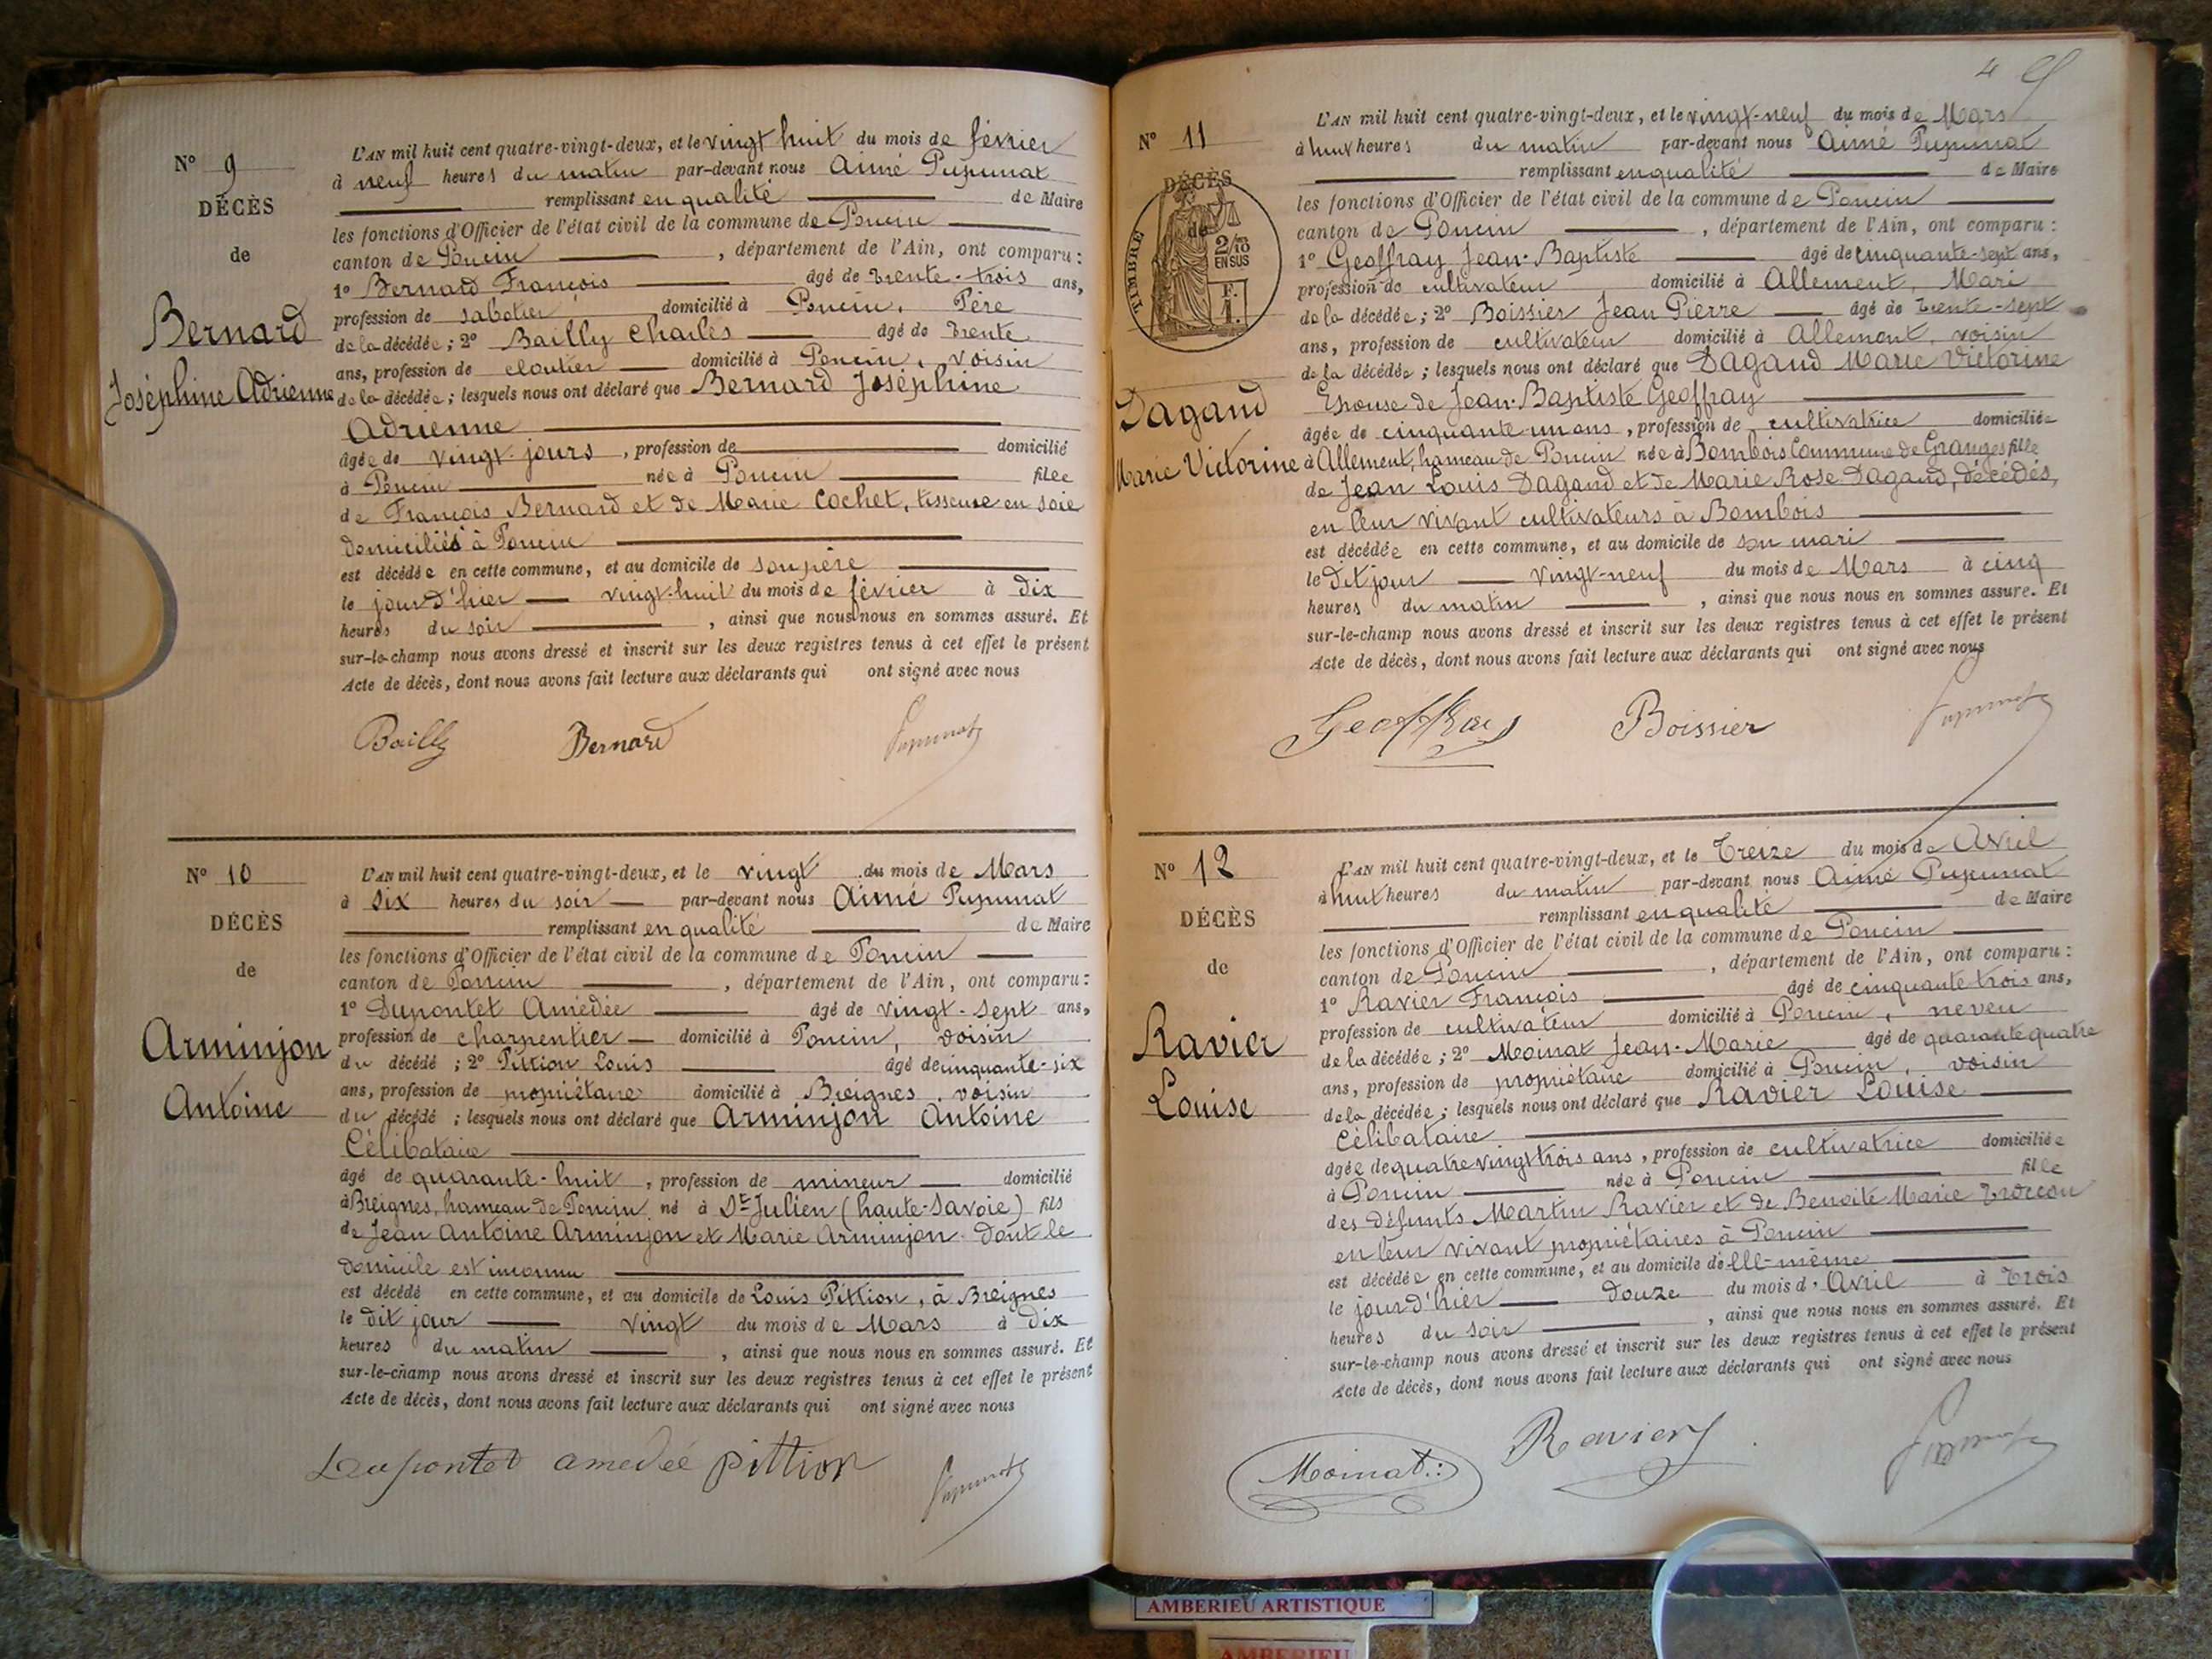 N° 9
DÉCÈS
de
Bernard
Joséphine Adrienne
L'AN mil huit cent quatre-vingt-deux, et le vingt huit du mois de février
à neuf heures du matin par-devant nous Aimé Pupunat
remplissant en qualité de Maire
les fonctions d'Officier de l'état civil de la commune de Poncin
canton de Poncin, département de l'Ain, ont comparu :
1° Bernard François âgé de trente-trois ans,
profession de sabotier domicilié à Poncin, Père
de la décédée ; 2° Bailly Charles âgé de trente
ans, profession de cloutier domicilié à Poncin, voisin
de la décédée ; lesquels nous ont déclaré que Bernard Joséphine
Adrienne
âgée de vingt-jours, profession de domicilié
à Poncin née à Poncin fille
de François Bernard et de Marie Cochet, tisseuse en soie
domiciliés à Poncin
est décédée en cette commune, et au domicile de son père
le jour d'hier vingt-huit du mois de février à dix
heures du soir, ainsi que nous nous en sommes assuré. Et
sur-le-champ nous avons dressé et inscrit sur les deux registres tenus à cet effet le présent
Acte de décès, dont nous avons fait lecture aux déclarants qui ont signé avec nous
Bailly Bernard Pupunat
N° 10
DÉCÈS
de
Arminjon
Antoine
L'AN mil huit cent quatre-vingt-deux, et le vingt du mois de Mars
à six heures du soir par-devant nous Aimé Pupunat
remplissant en qualité de Maire
les fonctions d'Officier de l'état civil de la commune de Poncin
canton de Poncin, département de l'Ain, ont comparu :
1° Dupontet Amédée âgé de vingt-sept ans,
profession de charpentier domicilié à Poncin, voisin
du décédé ; 2° Pittion Louis âgé de cinquante-six
ans, profession de propriétaire domicilié à Breignes, voisin
du décédé ; lesquels nous ont déclaré que Arminjon Antoine
Célibataire
âgé de quarante-huit, profession de mineur domicilié
à Breignes, hameau de Poncin né à St Julien (haute-Savoie) fils
de Jean Antoine Arminjon et Marie Arminjon dont le
domicile est inconnu
est décédé en cette commune, et au domicile de Louis Pittion, à Breignes
le dit jour vingt du mois de Mars à dix
heures du matin, ainsi que nous nous en sommes assuré. Et
sur-le-champ nous avons dressé et inscrit sur les deux registres tenus à cet effet le présent
Acte de décès, dont nous avons fait lecture aux déclarants qui ont signé avec nous
Dupontet amedée pittion Pupunat
4
N° 11
DÉCÈS
de
TIMBRE
2/10
EN SUS
F.
1.
Dagand
Marie Victorine
L'AN mil huit cent quatre-vingt-deux, et le vingt-neuf du mois de Mars
à huit heures du matin par-devant nous Aimé Pupunat
remplissant en qualité de Maire
les fonctions d'Officier de l'état civil de la commune de Poncin
canton de Poncin, département de l'Ain, ont comparu :
1° Geoffray Jean-Baptiste âgé de cinquante-sept ans,
profession de cultivateur domicilié à Allement, Mari
de la décédée ; 2° Boissier Jean Pierre âgé de trente-sept
ans, profession de cultivateur domicilié à Allement, voisin
de la décédée ; lesquels nous ont déclaré que Dagand Marie Victorine
Epouse de Jean-Baptiste Geoffray
âgée de cinquante-un ans, profession de cultivatrice domiciliée
à Allement, hameau de Poncin née à Bombois Commune de Granges fille
de Jean Louis Dagand et de Marie Rose Dagand, décédés,
en leur vivant cultivateurs à Bombois
est décédée en cette commune, et au domicile de son mari
le dit jour vingt-neuf du mois de Mars à cinq
heures du matin, ainsi que nous nous en sommes assuré. Et
sur-le-champ nous avons dressé et inscrit sur les deux registres tenus à cet effet le présent
Acte de décès, dont nous avons fait lecture aux déclarants qui ont signé avec nous
Geoffray Boissier Pupunat
N° 12
DÉCÈS
de
Ravier
Louise
L'AN mil huit cent quatre-vingt-deux, et le Treize du mois de Avril
à huit heures du matin par-devant nous Aimé Pupunat
remplissant en qualité de Maire
les fonctions d'Officier de l'état civil de la commune de Poncin
canton de Poncin, département de l'Ain, ont comparu :
1° Ravier François âgé de cinquante trois ans,
profession de cultivateur domicilié à Poncin, neveu
de la décédée ; 2° Moinat Jean-Marie âgé de quarante quatre
ans, profession de propriétaire domicilié à Poncin, voisin
de la décédée ; lesquels nous ont déclaré que Ravier Louise
Célibataire
âgée de quatre vingt trois ans, profession de cultivatrice domiciliée
à Poncin née à Poncin fille
des défunts Martin Ravier et de Benoite Marie Troccon
en leur vivant propriétaires à Poncin
est décédée en cette commune, et au domicile de elle-même
le jour d'hier douze du mois d'Avril à trois
heures du soir, ainsi que nous nous en sommes assuré. Et
sur-le-champ nous avons dressé et inscrit sur les deux registres tenus à cet effet le présent
Acte de décès, dont nous avons fait lecture aux déclarants qui ont signé avec nous
Moinat Ravier Pupunat
AMBERIEU ARTISTIQUE
AMBERIEU